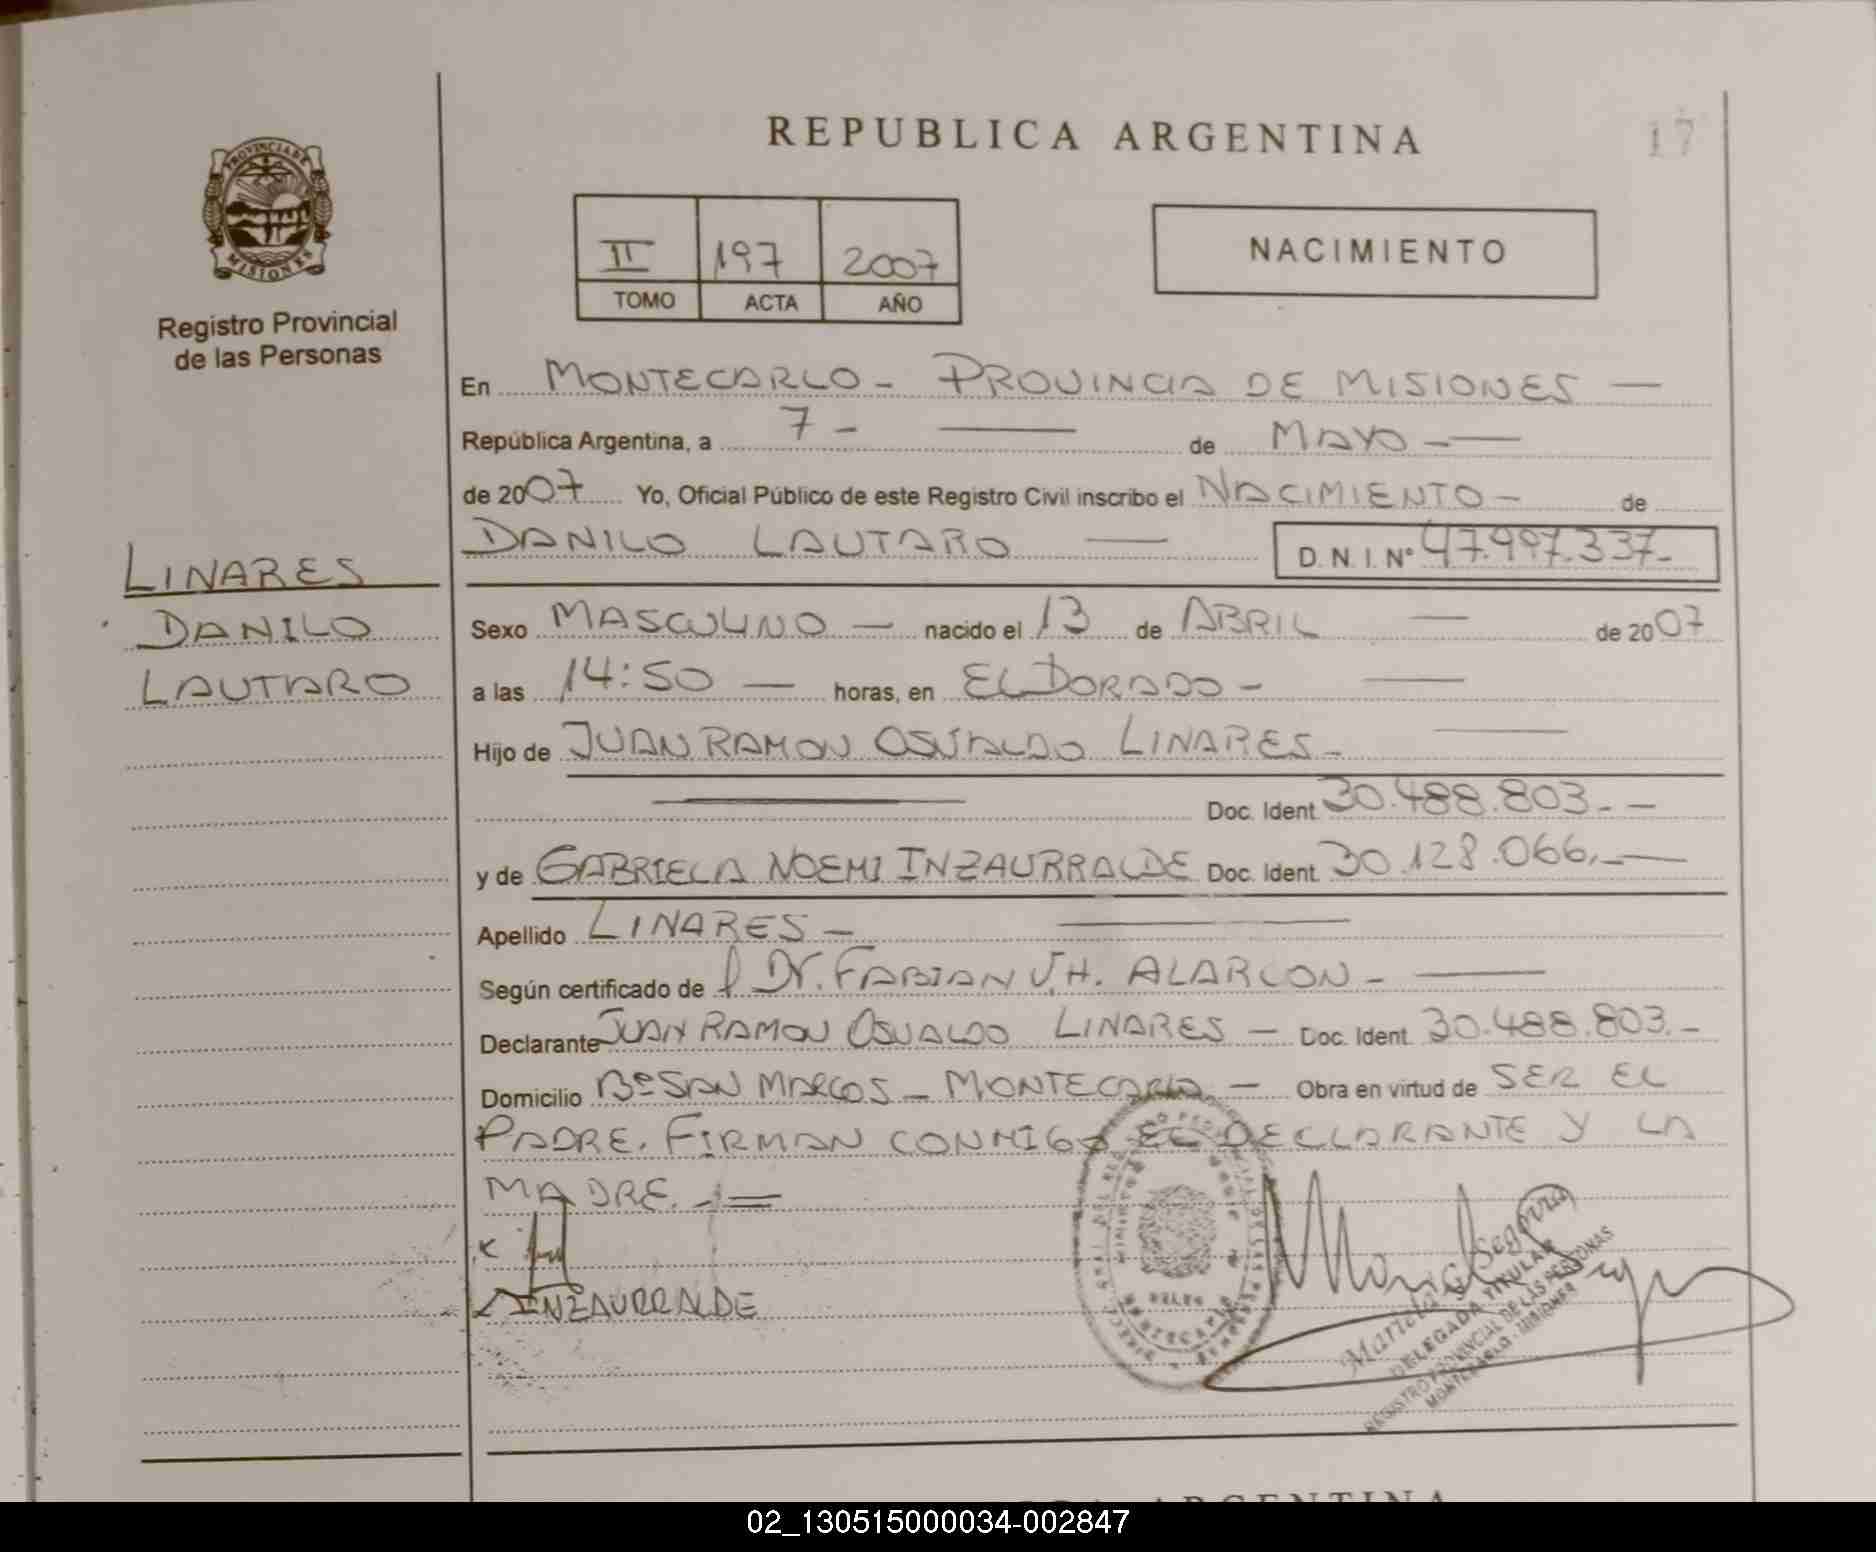 REPUBLICA ARGENTINA
17
PROVINCIA DE MISIONES
Registro Provincial
de las Personas
II 197 2007
TOMO ACTA AÑO
NACIMIENTO
En MONTECARLO - PROVINCIA DE MISIONES —
República Argentina, a 7 - — de MAYO - —
de 2007 Yo, Oficial Público de este Registro Civil inscribo el NACIMIENTO - de
DANILO LAUTARO — D.N.I. Nº 47.997.337-
LINARES
DANILO
LAUTARO
Sexo MASCULINO — nacido el 13 de ABRIL — de 2007
a las 14:50 — horas, en ELDORADO - —
Hijo de JUAN RAMON OSVALDO LINARES - —
— Doc. Ident. 30.488.803.- —
y de GABRIELA NOEMI INZAURRALDE Doc. Ident. 30.128.066.- —
Apellido LINARES - —
Según certificado de Dr. FABIAN J.H. ALARCON - —
Declarante JUAN RAMON OSVALDO LINARES - Doc. Ident. 30.488.803.-
Domicilio Bº SAN MARCOS - MONTECARLO - Obra en virtud de SER EL
PADRE. FIRMAN CONMIGO EL DECLARANTE Y LA
MADRE. - =
INZAURRALDE
Mariela G. Segovia
DELEGADA TITULAR
REGISTRO PROVINCIAL DE LAS PERSONAS
MONTECARLO - MISIONES
ARGENTINA
02_130515000034-002847